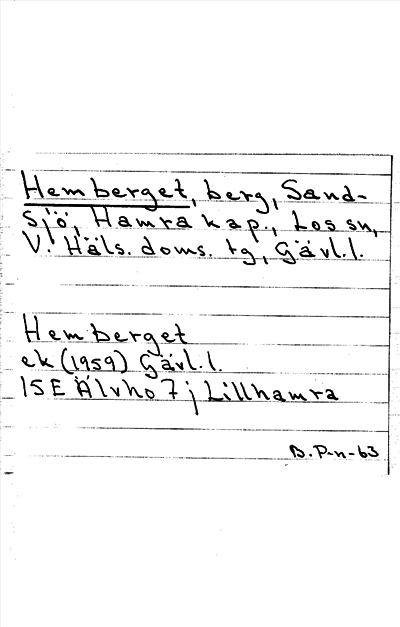 Hemberget, berg, Sand-
sjö, Hamra kap., Los sn,
V. Häls. doms. tg, Gävl. l.
Hemberget
ek (1959) Gävl. l.
15E Älvho 7j Lillhamra
B. P-n-63